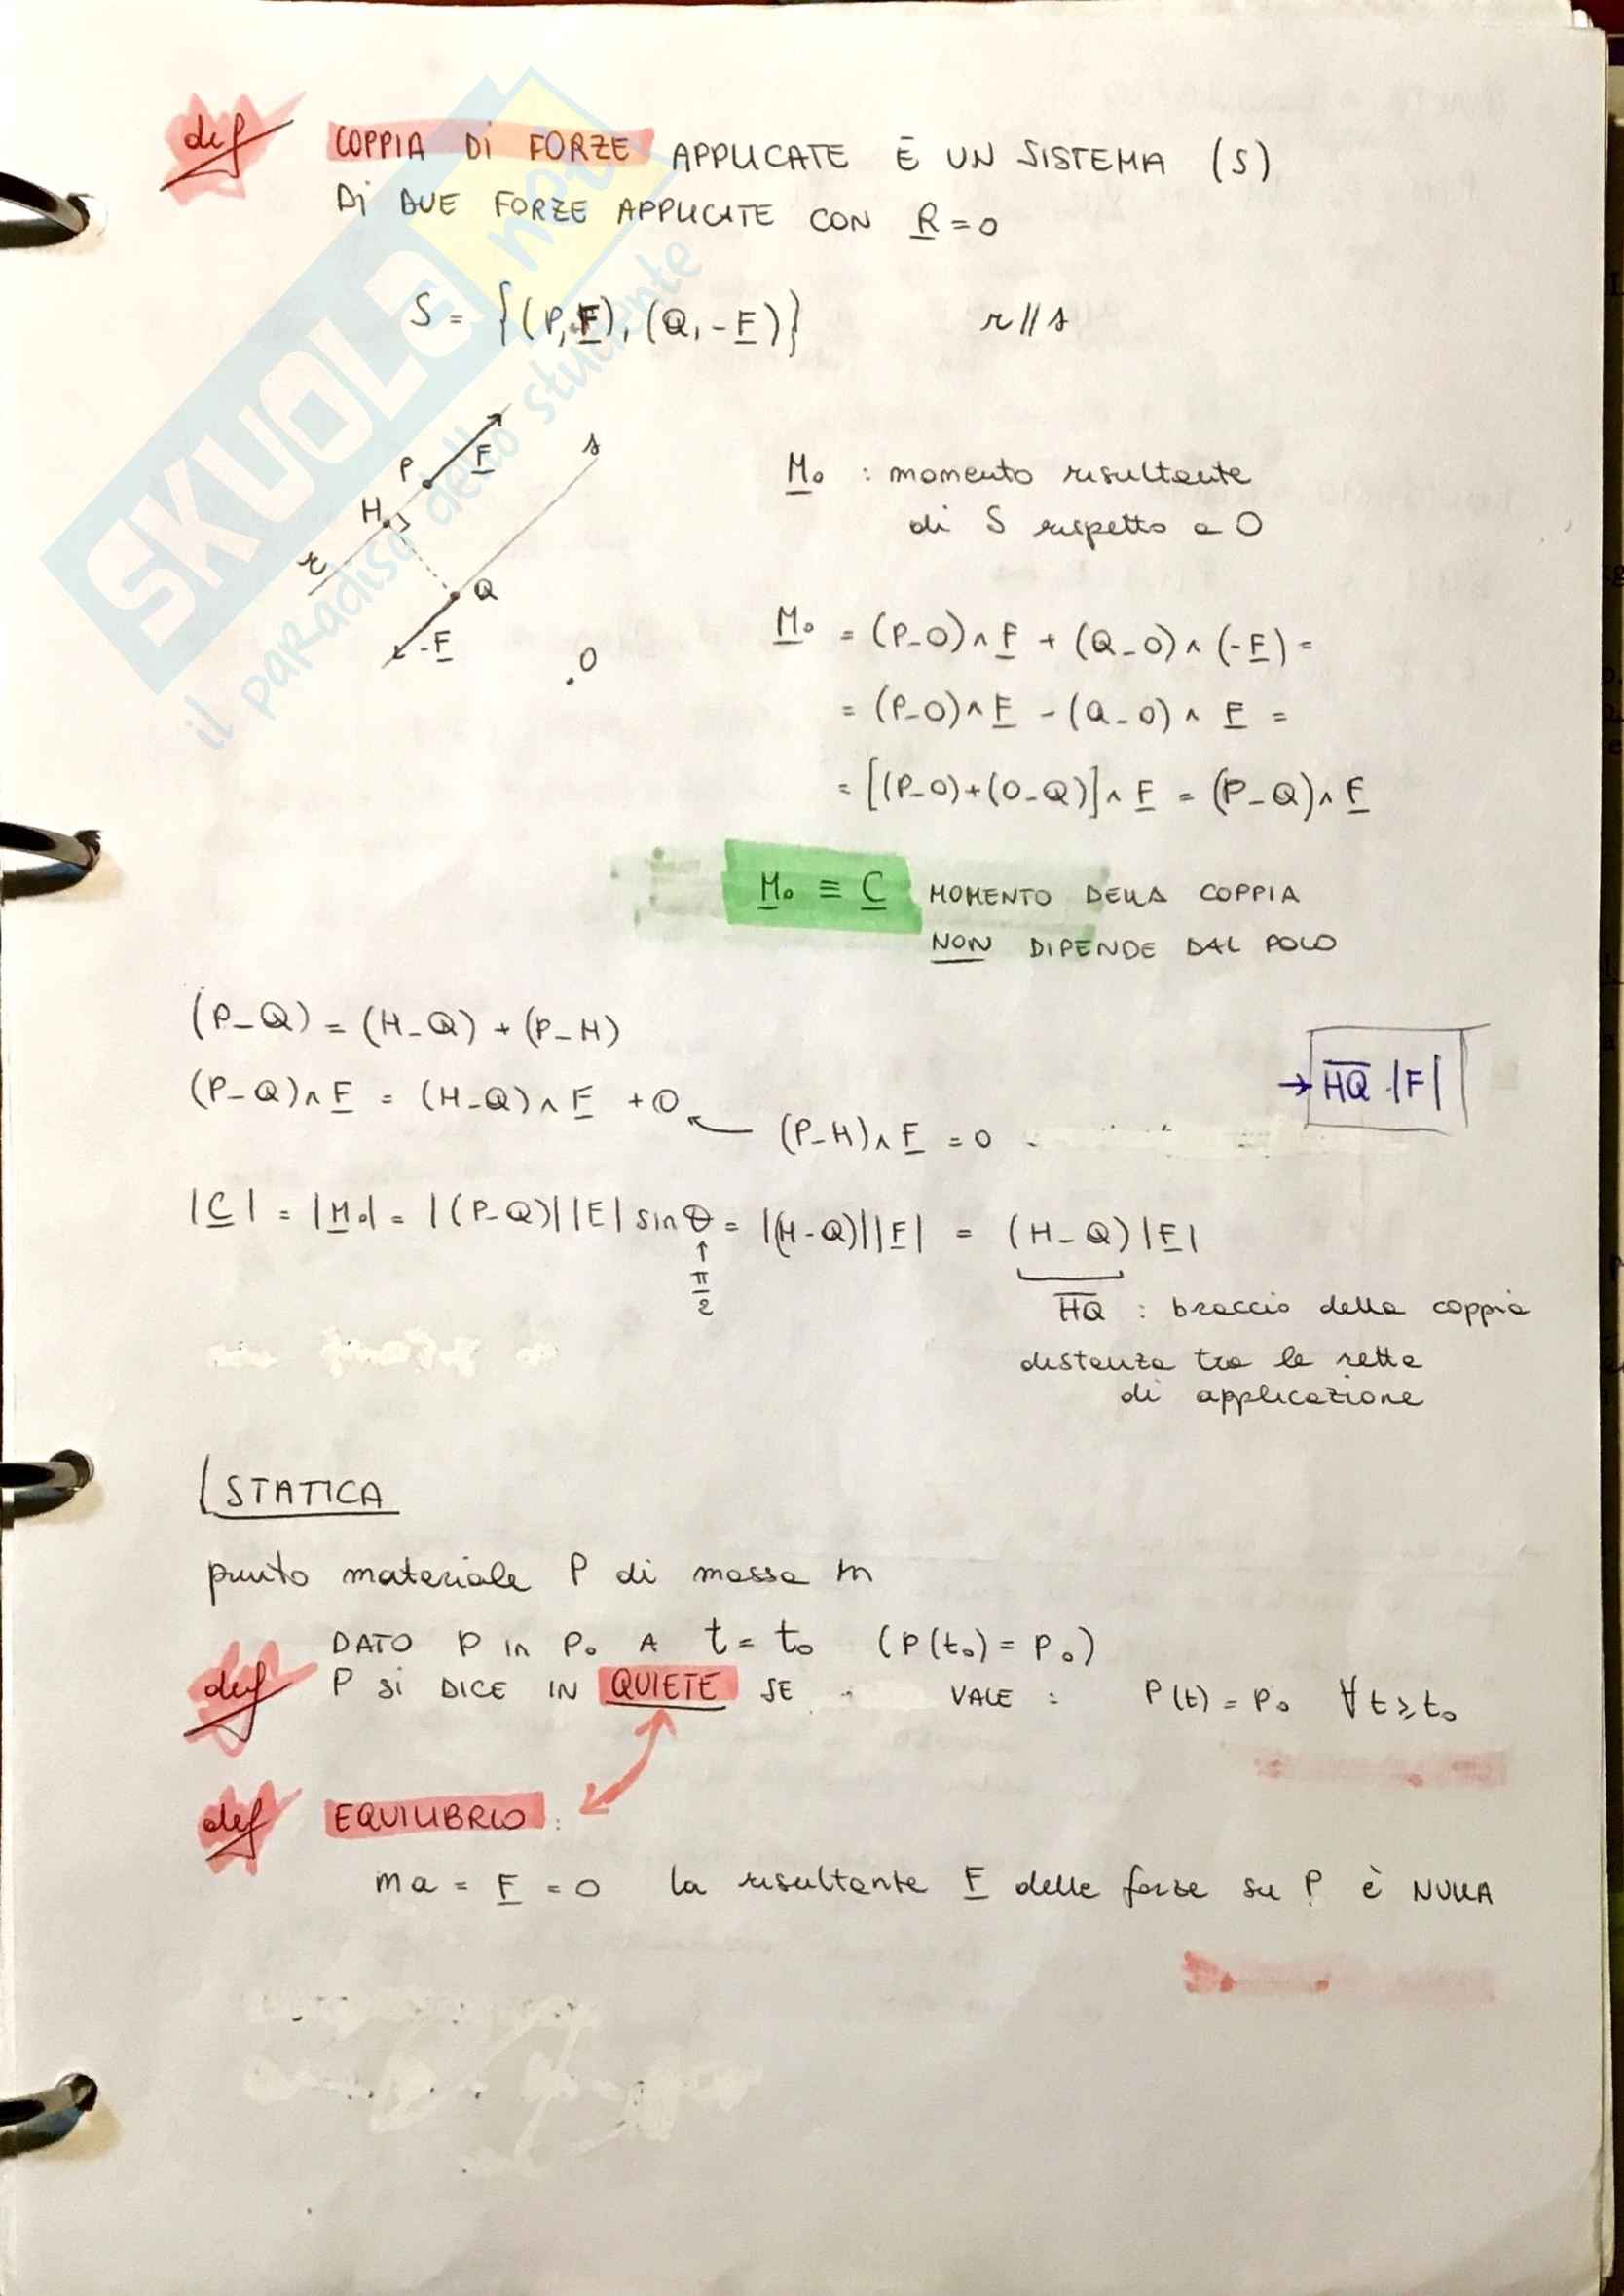 def COPPIA DI FORZE APPLICATE È UN SISTEMA (S)
DI DUE FORZE APPLICATE CON R = 0
S = {(P, F), (Q, -F)} r // s
P F s
H
r
Q
-F
.O
M₀ : momento risultante
di S rispetto a O
M₀ = (P-O)∧F + (Q-O)∧(-F) =
= (P-O)∧F - (Q-O)∧F =
= [(P-O)+(O-Q)]∧F = (P-Q)∧F
M₀ ≡ C MOMENTO DELLA COPPIA
NON DIPENDE DAL POLO
(P-Q) = (H-Q) + (P-H)
→ HQ · |F|
(P-Q)∧F = (H-Q)∧F + 0 ← (P-H)∧F = 0
|C| = |M₀| = |(P-Q)||F| sin θ = |(H-Q)||F| = (H-Q)|F|
↑
π/2
HQ : braccio della coppia
distanza tra le rette
di applicazione
STATICA
punto materiale P di massa m
DATO P IN P₀ A t = t₀ (P(t₀) = P₀)
def P SI DICE IN QUIETE SE VALE : P(t) = P₀ ∀ t ≥ t₀
def EQUILIBRIO :
ma = F = 0 la risultante F delle forze su P è NULLA
SKUOLA.net
il paradiso dello studente